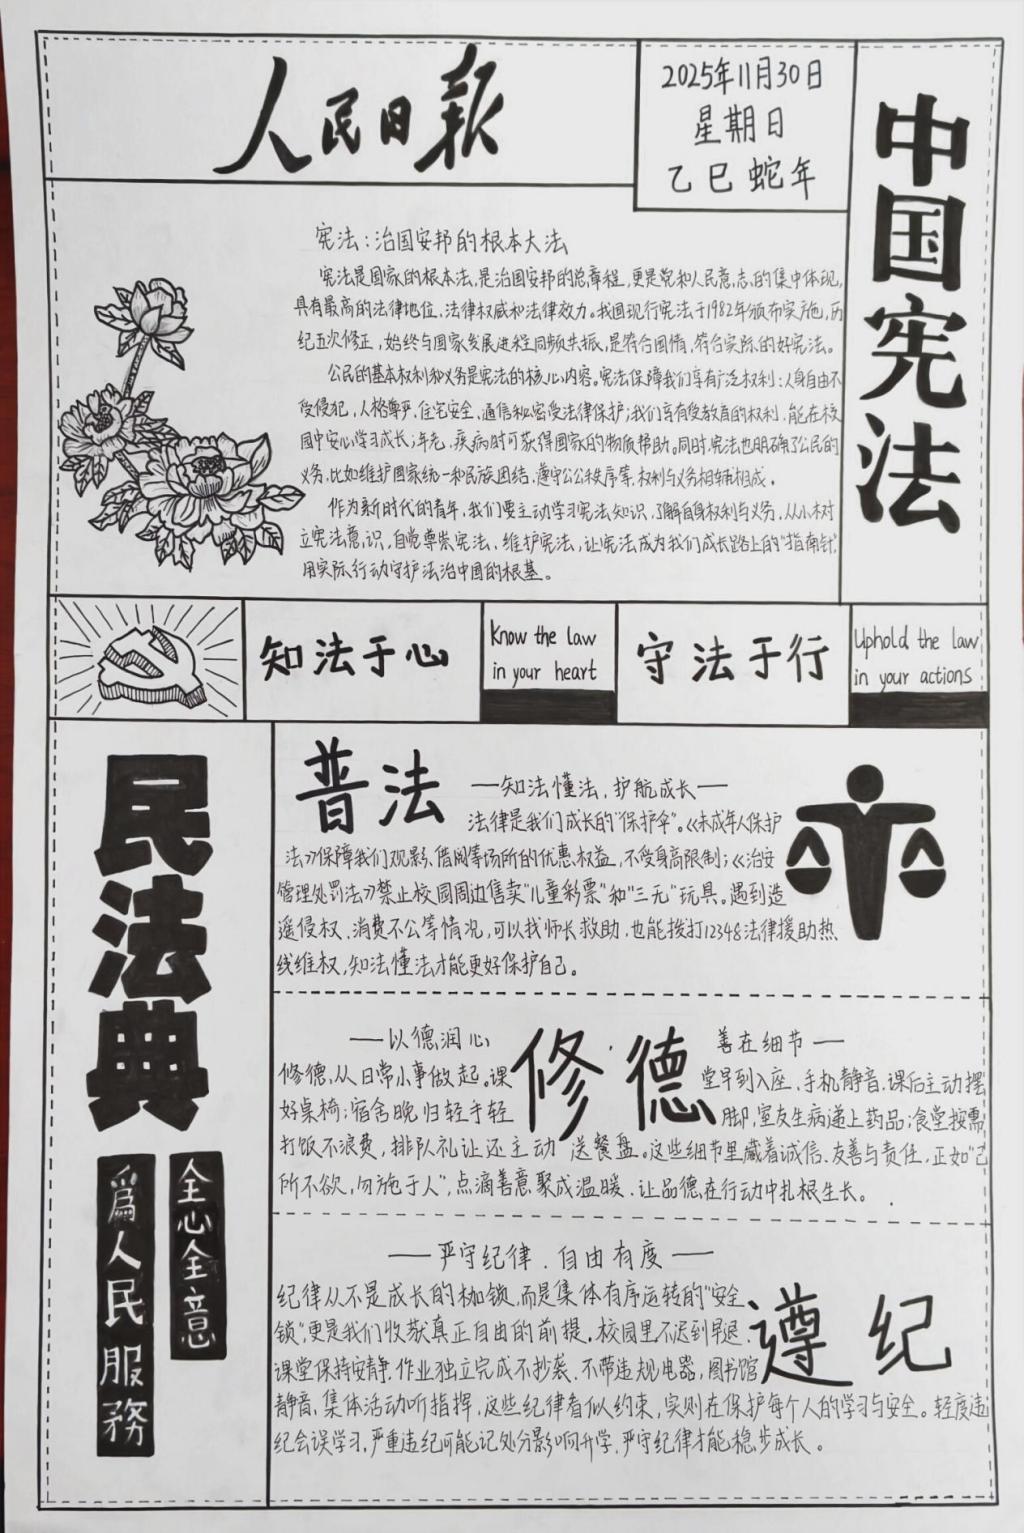 人民日报
2025年11月30日
星期日
乙巳蛇年
中国宪法
宪法：治国安邦的根本大法
宪法是国家的根本法，是治国安邦的总章程，更是党和人民意志的集中体现，
具有最高的法律地位、法律权威和法律效力。我国现行宪法于1982年颁布实施，历
经五次修正，始终与国家发展进程同频共振，是符合国情、符合实际的好宪法。
公民的基本权利和义务是宪法的核心内容。宪法保障我们享有广泛权利：人身自由不
受侵犯，人格尊严、住宅安全、通信秘密受法律保护；我们享有受教育的权利，能在校
园中安心学习成长；年老、疾病时可获得国家的物质帮助。同时，宪法也明确了公民的
义务，比如维护国家统一和民族团结、遵守公共秩序等，权利与义务相辅相成。
作为新时代的青年，我们要主动学习宪法知识，了解自身权利与义务，从小树
立宪法意识，自觉尊崇宪法、维护宪法，让宪法成为我们成长路上的“指南针”，
用实际行动守护法治中国的根基。
知法于心
Know the law
in your heart
守法于行
Uphold the law
in your actions
民法典
全心全意
爲人民服務
普法
—知法懂法，护航成长—
法律是我们成长的“保护伞”。《未成年人保护
法》保障我们观影、借阅等场所的优惠权益，不受身高限制；《治安
管理处罚法》禁止校园周边售卖“儿童彩票”和“三无”玩具。遇到造
谣侵权、消费不公等情况，可以找师长救助，也能拨打12348法律援助热
线维权，知法懂法才能更好保护自己。
修德
—以德润心 善在细节—
修德，从日常小事做起。课 堂早到入座、手机静音，课后主动摆
好桌椅；宿舍晚归轻手轻 脚，室友生病递上药品；食堂按需
打饭不浪费，排队礼让还主动 送餐盘。这些细节里藏着诚信、友善与责任，正如“己
所不欲，勿施于人”，点滴善意聚成温暖，让品德在行动中扎根生长。
—严守纪律、自由有度—
遵纪
纪律从不是成长的枷锁，而是集体有序运转的“安全
锁”，更是我们收获真正自由的前提。校园里不迟到早退、
课堂保持安静、作业独立完成不抄袭、不带违规电器，图书馆
静音、集体活动听指挥，这些纪律看似约束，实则在保护每个人的学习与安全。轻度违
纪会误学习，严重违纪可能记处分影响升学，严守纪律才能稳步成长。